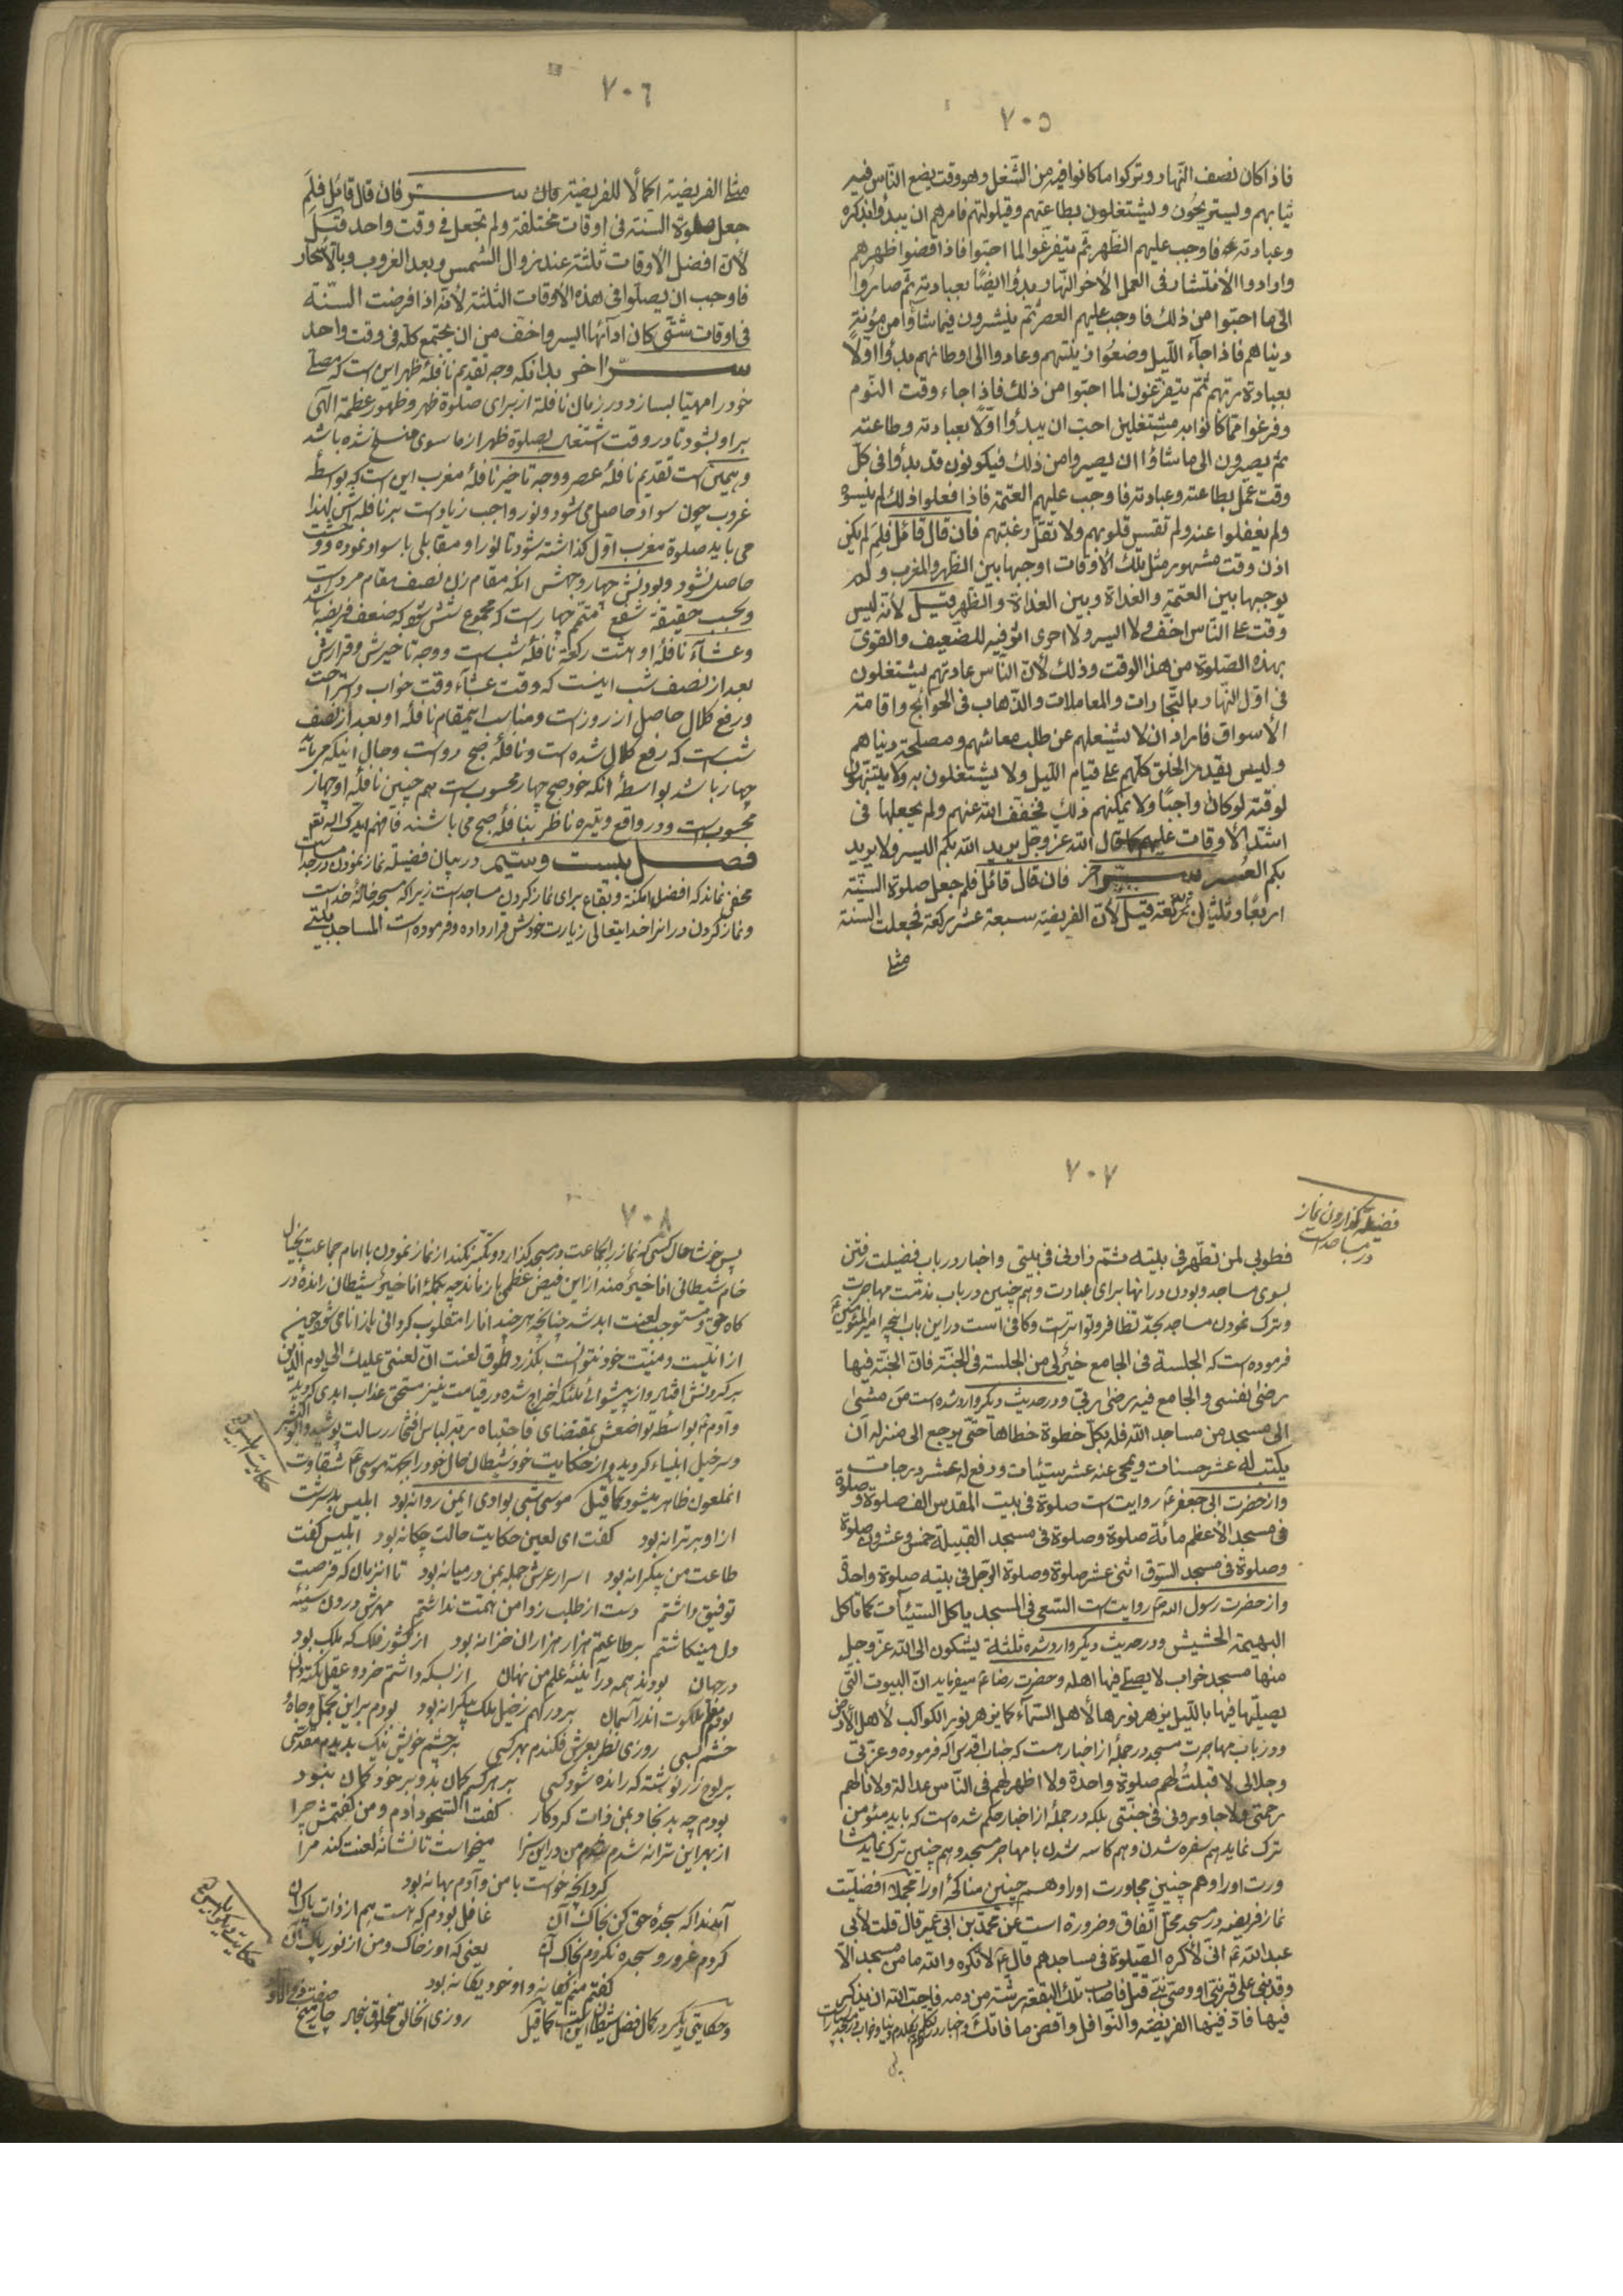 ٧٠٥
فاذا كان نصف النّهار وتركوا ما كانوا فيه من الشّغل وهو وقت يضع النّاس فيه
ثيابهم ويستريحون ويشتغلون بطاعتهم وقيلولتهم فامرهم ان يبدؤا بذكره
وعبادته فاوجب عليهم الظّهر ثمّ يتفرّغوا لما احبّوا فاذا قضوا ظهرهم
وارادوا الأنتشار فى العمل لأخر النّهار بدؤا ايضًا بعبادته ثمّ صاروا
الى ما احبّوا من ذلك فاوجب عليهم العصر ثمّ ينتشرون فيما شاؤا من مؤنة
دنياهم فاذا جاء اللّيل وضعوا زينتهم وعادوا الى اوطانهم بدأوا اوّلاً
بعبادة ربّهم ثمّ يتفرّغون لما احبّوا من ذلك فاذا جاء وقت النّوم
وفرغوا ممّا كانوا به مشتغلين احبّ ان يبدؤا اوّلًا بعبادته وطاعته
ثمّ يصيرون الى ما شاؤا ان يصيروا من ذلك فيكونون قد بدأوا فى كلّ
وقت عمل بطاعته وعبادته فاوجب عليهم العتمة فاذا فعلوا ذلك لم ينسوه
ولم يغفلوا عنه ولم تقس قلوبهم ولا تقلّ رغبتهم فان قال قائل فلم لم يكن
اذن وقت مشهور مثل تلك الأوقات اوجبها بين الظّهر والمغرب ولم
يوجبها بين العتمة والغداة وبين الغداة والظّهر قيل لأنّه ليس
وقت على النّاس اخفّ ولا ايسر ولا احرى اثر فيه للضّعيف والقوىّ
بهذه الصّلوة من هذا الوقت وذلك لأنّ النّاس عادتهم يشتغلون
فى اوّل النّهار بالتّجارات والمعاملات والذّهاب فى الحوائج واقامة
الأسواق فاراد ان لا يشغلهم عن طلب معاشهم ومصلحة دنياهم
وليس يقدر الخلق كلّهم على قيام اللّيل ولا يشتغلون به ولا ينتبهون
لوقته لو كان واجبًا ولا يمكنهم ذلك فخفّف الله عنهم ولم يجعلها فى
اشدّ الأوقات عليهم كما قال الله عزّ وجلّ يريد الله بكم اليسر ولا يريد
بكم العسر سرّ اخر فان قال قائل فلم جعل صلوة السنّة
اربعًا وثلثين ركعة قيل لأنّ الفريضه سبعة عشر ركعة فجعلت السنة
مثلى
٧٠٦
مثلى الفريضية اكمالًا للفريضية فان قال قائل فلم
جعل صلوة السنة فى اوقات مختلفة ولم تجعل فى وقت واحد قيل
لأنّ افضل الأوقات ثلثة عند زوال الشّمس وبعد الغروب وبالأسحار
فاوجب ان يصلّوا فى هذه الأوقات الثلثة لأنّه اذا فرضت السنّة
فى اوقات شتّى كان ادآئها ايسر واخفّ من ان يجتمع كلّه فى وقت واحد
سرّ اخر بدانكه وجه تقديم نافلۀ ظهر اين است كه مصلّى
خود را مهيّا بسازد در زمان نافلة از براى صلوة ظهر وظهور عظمة الهى
بر او بشود تا در وقت اشتغال بصلوة ظهر از ما سوى منسلخ شده باشد
وهمين است تقديم نافلۀ عصر ووجه تاخير نافلۀ مغرب اين است كه بواسطۀ
غروب چون سواد حاصل مى شود ونور واجب زياد است بر نافله اش لهذا
مى بايد صلوة مغرب اوّل گذاشته شود تا نور او مقابلى با سواد نموده و وحشت
حاصل نشود وبودنش چهار وجهش آنكه مقام زن نصف مقام مرد است
وبحسب حقيقة شفع متمّم چهار است كه مجموع شش شود كه ضعف فريضه باشد
وعشآء نافلۀ او هشت ركعة نافلۀ شب است ووجه تاخيرش وقرارش
بعد از نصف شب اينست كه وقت عشاء وقت خواب واستراحت
ورفع كلال حاصل از روز است ومناسب اينمقام نافلۀ او بعد از نصف
شب است كه رفع كلال شده است ونافلۀ صبح دو است وحال اينكه مى بايد
چهار باشد بواسطۀ آنكه خود صبح چهار محسوب است هم چنين نافلۀ او چهار
محسوب است ودر واقع وتيره ناظر بنافلۀ صبح مى باشند فافهم
فصل بيست وسيّم در بيان فضيلة نماز نمودن در مساجد است
مخفى نماند كه افضل امكنة وبقاع براى نماز كردن مساجد است زيرا كه مسجد خانۀ خداست
ونماز كردن در انرا خدايتعالى زيارت خودش قرار داده وفرموده است المساجد بيتى
٧٠٧
فضيلة گذاردن نماز
در مساجد است
فطوبى لمن تطهّر فى بيته ثمّ زارنى فى بيتى واخبار در باب فضيلت رفتن
بسوى مساجد وبودن در انها براى عبادت وهم چنين در باب مذمّت مهاجرت
وترك نمودن مساجد بحدّ تظافر وتواتر است وكافى است در اين باب انچه امير المؤمنين ع
فرموده است كه الجلسة فى الجامع خير لى من الجلسة فى الجنّة فانّ الجنّة فيها
رضى نفسى والجامع فيه رضى ربّى ودر حديث ديگر وارد شده است من مشى
الى مسجد من مساجد الله فله بكلّ خطوة خطاها حتّى يرجع الى منزله ان
يكتب له عشر حسنات ويمحى عنه عشر سيّئات ورفع له عشر درجات
واز حضرت ابى جعفر ع روايت است صلوة فى بيت المقدس الف صلوة وصلوة
فى مسجد الأعظم مائة صلوة وصلوة فى مسجد القبيلة خمس وعشرون صلوة
وصلوة فى مسجد السّوق اثنى عشر صلوة وصلوة الرّجل فى بيته صلوة واحدة
واز حضرت رسول الله ص روايت است السّعى فى المسجد ياكل السّيّئات كما تاكل
البهيمة الحشيش ودر حديث ديگر وارد شده ثلثة يشكون الى الله عزّ وجلّ
منها مسجد خراب لا يصلّى فيها اهله وحضرت رضا ع ميفرمايد انّ البيوت الّتى
يصلّى فيها باللّيل يزهر نورها لأهل السّمآء كما يزهر نور الكواكب لأهل الأرض
ودر باب مهاجرت مسجد در جملۀ از اخبار است كه جناب اقدس اله فرموده وعزّتى
وجلالى لا قبلت لهم صلوة واحدة ولا اظهر لهم فى النّاس عدالة ولا نالهم
رحمتى ولا جاورونى فى جنّتى بلكه در جملۀ از اخبار حكم شده است كه بايد مؤمن
ترك نمايد هم سفره شدن وهم كاسه شدن با مهاجر مسجد وهم چنين ترك نمايد
ورت او را وهم چنين مجاورت او را وهم چنين مناكحۀ او را افضليّت
نماز فريضه در مسجد محلّ اتّفاق وضرورة است عن محمّد بن ابى عمير قال قلت لأبى
عبد الله ع انّى لأكره الصّلوة فى مساجدهم قال ع لا تكره والله ما من مسجد الّا
وقد بنى على قبر نبىّ او وصىّ نبىّ قتل فاصاب تلك البقعة رشّة من دمه فاحبّ الله ان يذكر
فيها فادّ فيها الفريضه والنّوافل واقض ما فاتك
پس
٧٠٨
پس خوشا حال كسى كه نماز را بجماعت در مسجد گذارد وتكبّر نكند از نماز نمودن با امام جماعت بخيال
خام شيطانى انا خير منه از اين فيض عظمى باز ماند چه بكلمۀ انا خير شيطان راندۀ در
گاه حق ومستوجب لعنت ابد شد چنانچه هر چند انا را مقلوب كردانى باز انا مى شود همين
از انيّت ومنيّت خود نتوانست بگذرد وطوق لعنت انّ لعنتى عليك الى يوم الدّين
بر گردنش افتاد واز پيشوائى ملئكه اخراج شده در قيامت نيز مستحقّ عذاب ابدى گرديد
وآدم ع بواسطۀ تواضعش بمقتضاى فاجتباه ربّه لباس افتخار رسالت پوشيد وابو البشر
وسر خيل انبياء گرديد واز حكايت خود شيطان حال خود را بجهة موسى ع شقاوت
انملعون ظاهر ميشود كما قيل موسى شبى بوادى ايمن روانه بود ابليس بد سرشت
از او بر ترانه بود گفت اى لعين حكايت حالت چگانه بود ابليس گفت
طاعت من بيكرانه بود اسرار عرش جمله بمن در ميانه بود تا انزمان كه فرصت
توفيق داشتم دست از طلب زدامن همّت نداشتم مهرش درون سينۀ
دل مينكاشتم بر طاعتم هزار هزاران خزانه بود از كشور فلك كه ملك بود
در جهان بودند همه در آينۀ علم من نهان از بسكه داشتم خرد وعقل نكته دان
بودم معلّم ملكوت اندر آسمان بر درگهم ز خيل ملك بيكرانه بود بودم بر اين تجمّل وجاه
حشم بسى روزى نظر بعرش فكندم بهر كسى بر چشم خويش نيك بديدم مقدّسى
بر لوح زار نوشته كه رانده شود كسى بر هر كس كمان بد وبر خود كمان نبود
بودم چه بد نجا وبمن ذات كردكار گفت السّجود آدم ومن گفتمش چرا
از بهر اين ترانه شدم من در اين سزا ميخواست تا نشانۀ لعنت كند مرا
كرد انچه خواست با من وآدم بهانه بود
آمد ندا كه سجدۀ حق كن بخاك آن غافل بودم كه هست هم از ذات پاك آن
كردم غرور وسجده نكردم بخاك آن يعنى كه او ز خاك ومن از نور پاك آن
گفتم منم يكانه واو خود يكانه بود
وحكايتى ديگر در كمال فضل شيطان اين است كما قيل روزى
حكايت ابليس
حكايت ديگر